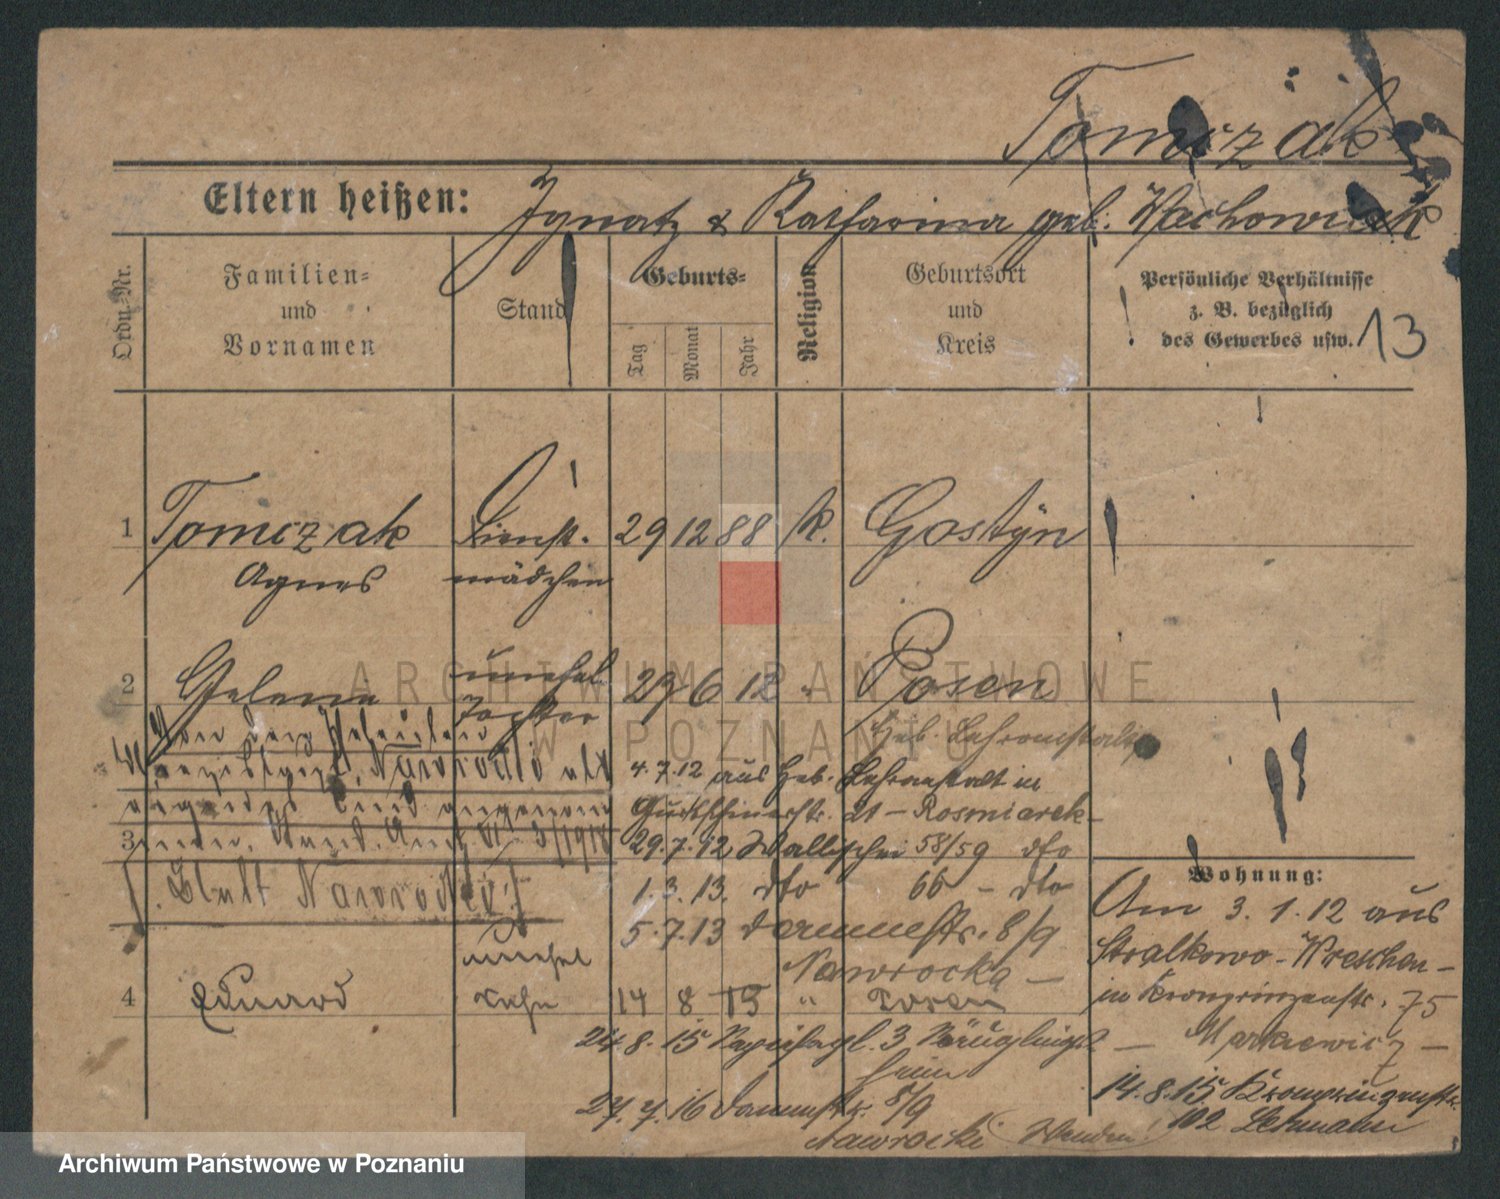 Tomczak
Eltern heißen: Ignatz & Katharina geb. Wachowiak
Ordn.-Nr.
Familien-
und
Vornamen
Stand
Geburts-
Tag
Monat
Jahr
Religion
Geburtsort
und
Kreis
Persönliche Verhältnisse
z. B. bezüglich
des Gewerbes usw.
13
1 Tomczak Dienst- 29 12 88 k. Gostyn
Agnes mädchen
2 Helena unehel. 29 6 12 " Posen
Tochter
Von dem
Nawrocki als
4.7.12 aus Heb. Lehranstalt in
eigenes Kind
21 - Rosmiarek -
3
29.7.12 Wallischei 58/59 dto
Nawrocki
1.3.13. dto 66 - dto
5.7.13 Dammstr. 8/9
Nawrocka -
unehel
4 Eduard Sohn 14 8 15 " Posen
24.8.15 3 Säuglings
heim
27.7.16 Dammstr. 8/9
Nawrocki (Wenden!)
Wohnung:
Am 3.1.12 aus
Stralkowo - Wreschen -
in Kronprinzenstr. 75
- Markiewicz -
14.8.15 Kronprinzenstr.
102 Lehmann
ARCHIWUM PAŃSTWOWE
W POZNANIU
Archiwum Państwowe w Poznaniu